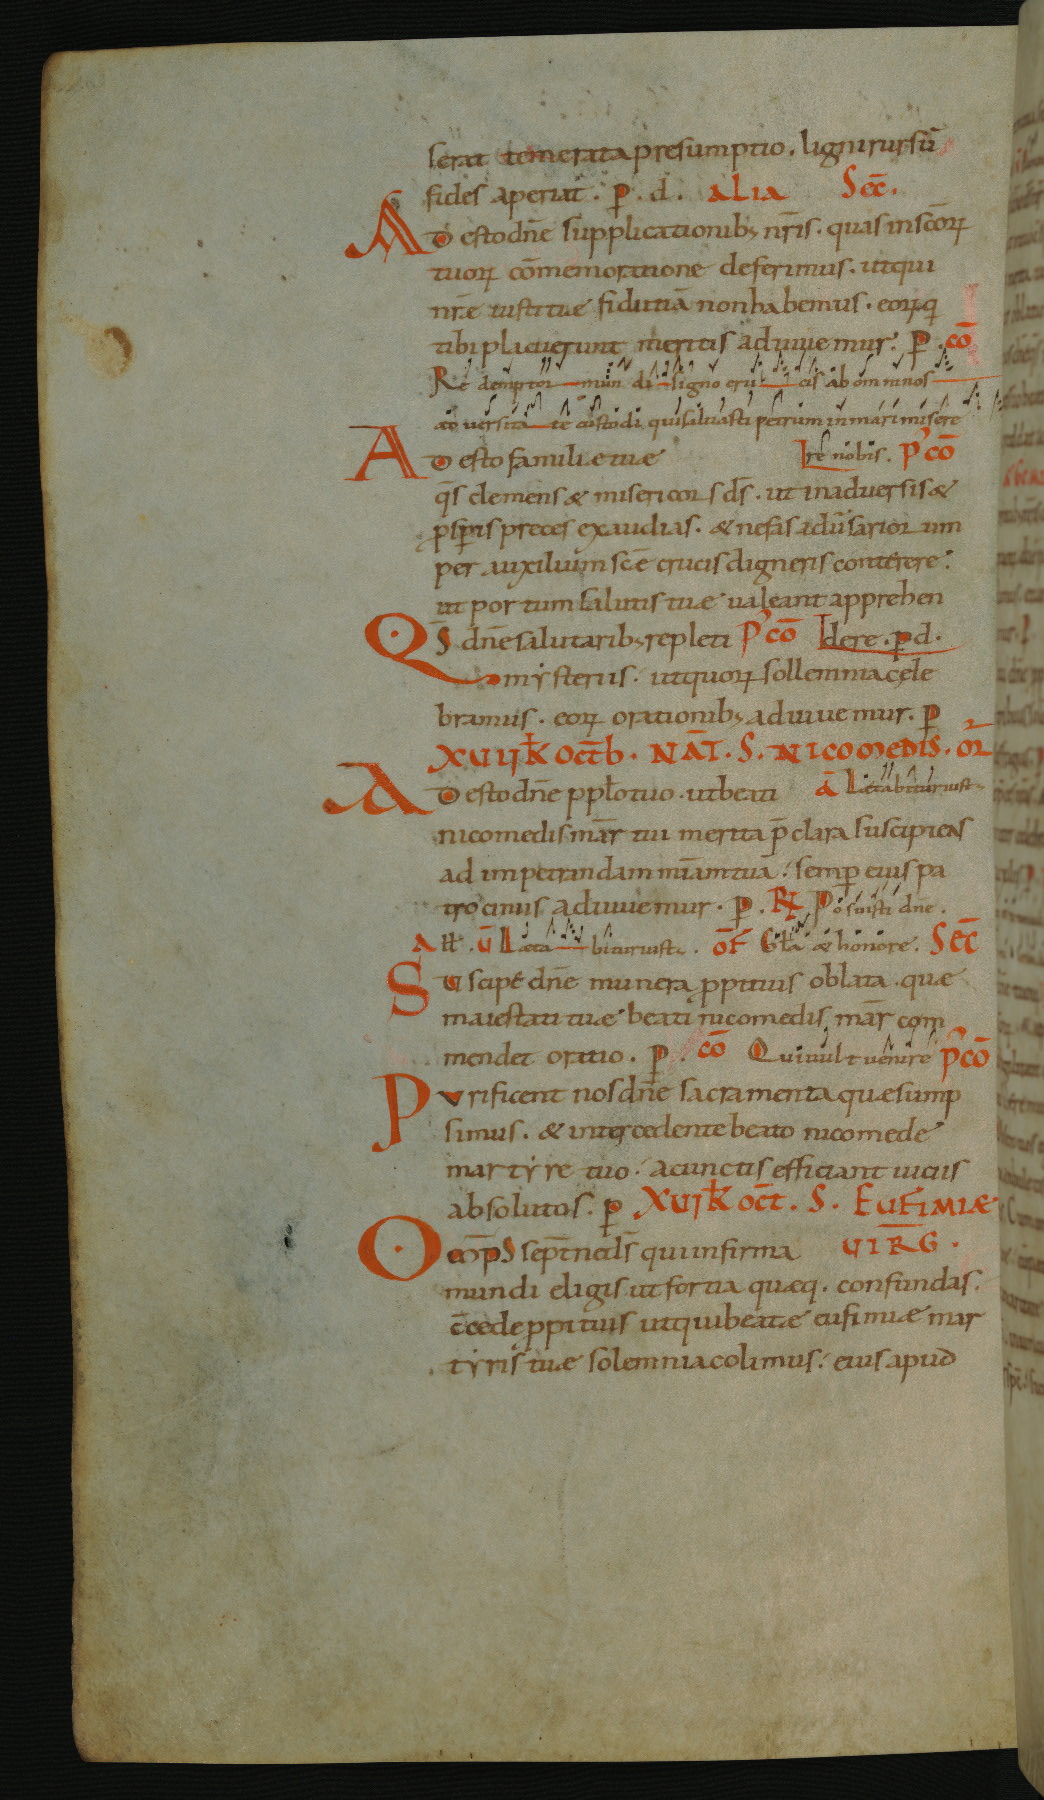 serat temerata presumptio. ligni rursū
fides aperiat. p̄. d. ALIA Sec̄.
AD esto dn̄e supplicationib; nr̄is. quas in scōrꝝ
tuorꝝ cōmemoratione deferimus. ut qui
nr̄e iustitiae fidutiā non habemus. eorꝝ q̄
tibi placuerunt meritis adiuuemur. p̄. cō
Redemptor mundi signo crucis ab omni nos
aduersitate custodi qui saluasti petrum in mari misere
AD esto familiae tuae re nobis. P̄ cō
q̄s clemens & misericors d̄s. ut in aduersis &
p̄speris preces exaudias. & nefas aduersariorum
per auxilium scē crucis digneris conterere.
ut portum salutis tuae ualeant apprehen
QS dn̄e salutarib; repleti P̄ cō dere. p̄ d.
mysteriis. ut quorꝝ sollemnia cele
bramus. eorꝝ orationib; adiuuemur. p̄
XVII K̄ OCT̄B. NAT̄. S. NICOMEDIS. OR̄
AD esto dn̄e pplo tuo. ut beati ā Laetabitur iust
nicomedis mār tui merita p̄clara suscipiens
ad impetrandam mīam tuā. semp̄ eius pa
trociniis adiuuemur. p̄. R̄ Posuisti dn̄e.
All̄. V̄ Laetabitur iustus. Of̄ Gl̄a & honore. Sec̄
SUscipe dn̄e munera p̄pitius oblata. quae
maiestati tuae beati nicomedis mār com
mendet oratio. p̄. cō Qui uult uenire P̄ cō
PUrificent nos dn̄e sacramenta quae sump
simus. & intercedente beato nicomede
martyre tuo. a cunctis efficiant uiciis
absolutos. p̄ XVI K̄ OCT̄. S. EUFIMIAE
OMP̄S sēpt̄ne d̄s qui infirma VIR̄G.
mundi eligis ut fortia quaeq. confundas.
c̄cede p̄pitius ut qui beatae eufimiae mar
tyris tuae solemnia colimus. eius apud